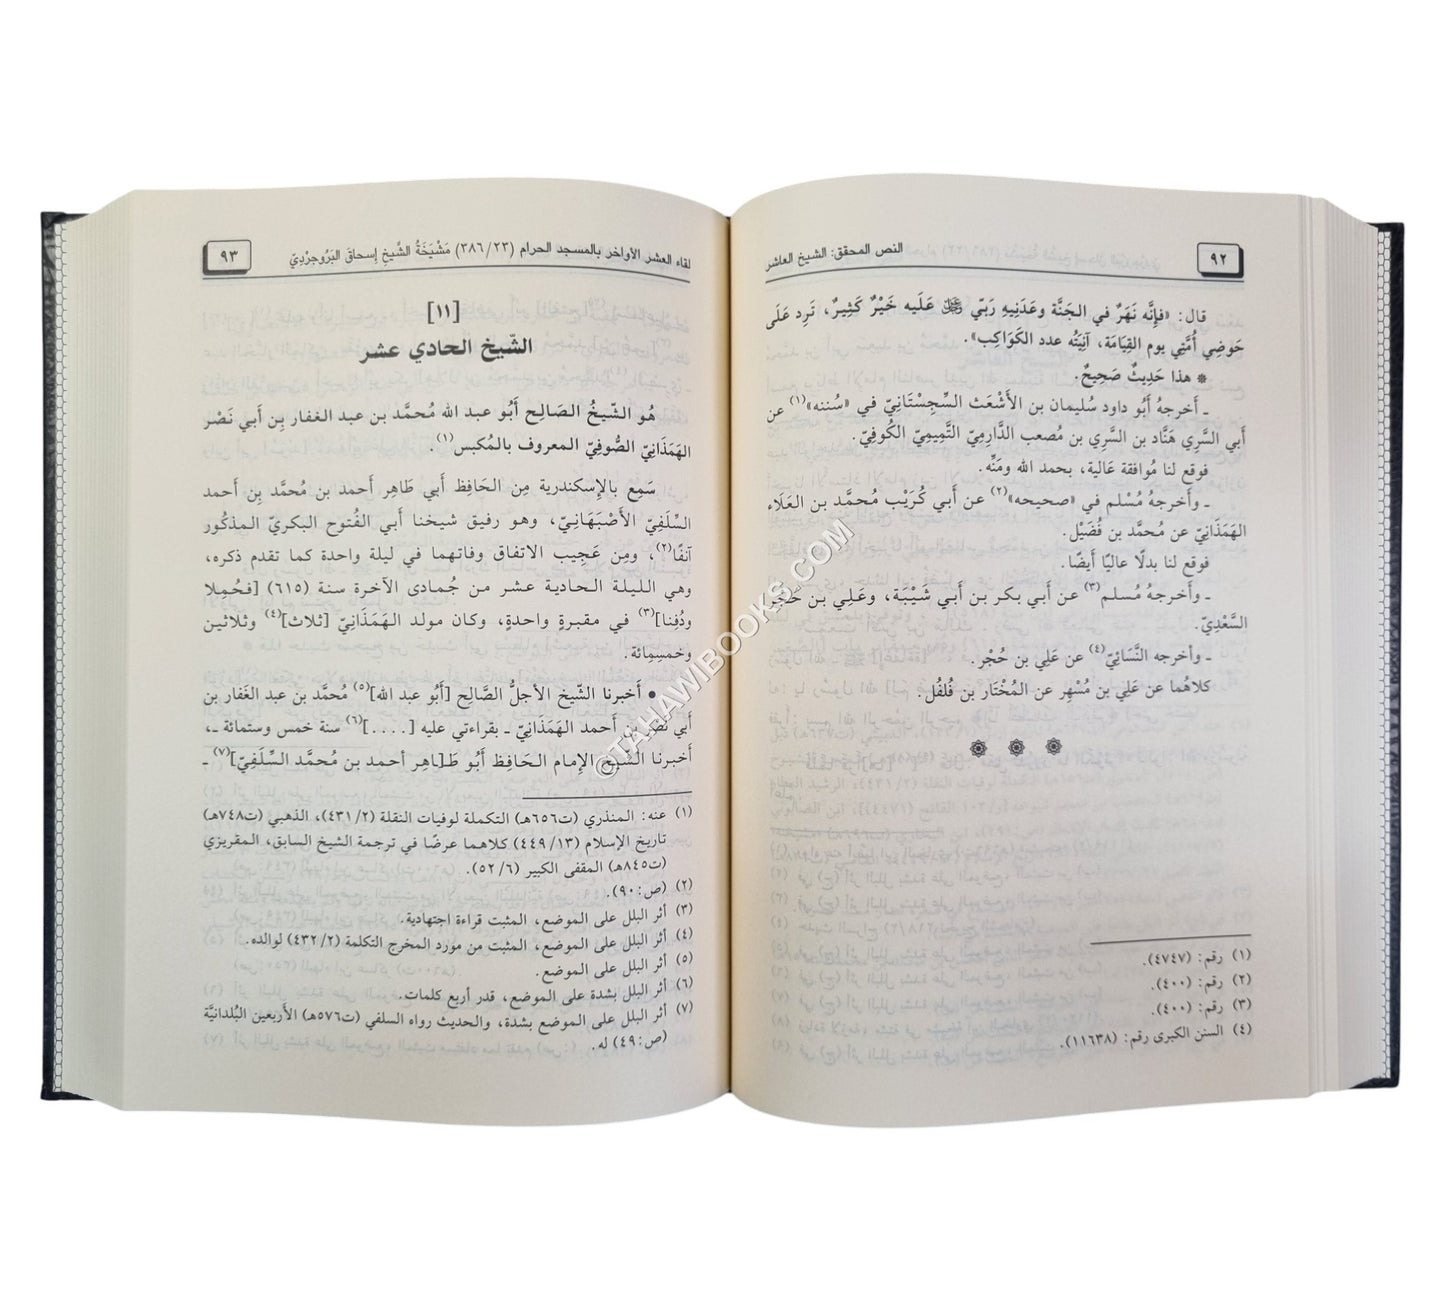 ٩٢
النص المحقق: الشيخ العاشر
قال: «فإِنَّه نَهَرٌ في الجَنَّة وعَدَنِيهِ رَبّي ﷺ عَلَيه خَيْرٌ كَثِيرٌ، تَرِد عَلَى
حَوضِي أُمَّتِي يوم القِيَامَة، آنِيَتُه عدد الكَوَاكِب».
* هذا حَدِيثٌ صَحِيحٌ.
ـ أَخرجهُ أَبُو داود سُليمان بن الأَشْعَث السِّجِسْتَانِيّ في «سُننه»(١) عن
أَبي السَّرِي هَنَّاد بن السَّرِي بن مُصعب الدَّارِمِيّ التَّمِيمِيّ الكُوفِيّ.
فوقع لنا مُوافقة عَالية، بحمد الله ومَنِّه.
ـ وأَخرجهُ مُسْلم في «صحيحه»(٢) عن أَبي كُرَيْب مُحمَّد بن العَلَاء
الهَمْدَانِيّ عن مُحمَّد بن فُضَيْل.
فوقع لنا بدلًا عاليًا أَيضًا.
ـ وأَخرجهُ مُسلم(٣) عن أَبي بكر بن أَبي شَيْبَة، وعَلِي بن حُجْر
السَّعْدِيّ.
ـ وأخرجه النَّسَائِيّ(٤) عن عَلِي بن حُجْر.
كلاهُما عن عَلِي بن مُسْهِر عن المُخْتَار بن فُلفُل.
(١) رقم: (٤٧٤٧).
(٢) رقم: (٤٠٠).
(٣) رقم: (٤٠٠).
(٤) السنن الكبرى رقم: (١١٦٣٨).
لقاء العشر الأواخر بالمسجد الحرام (٣٨٦/٢٣) مَشْيَخَةُ الشَّيخ إسحاقَ البَرُوجِرْدِيّ
٩٣
[١١]
الشّيخ الحادي عشر
هُو الشّيخُ الصَّالِح أَبُو عبد الله مُحمَّد بن عبد الغفار بِن أَبي نَصْر
الهَمَذَانِيّ الصُّوفِيّ المعروف بالمُكبس(١).
سَمِع بالإسكندرية مِن الحَافِظ أَبي طَاهِر أَحمد بن مُحمَّد بِن أَحمد
السِّلَفِيّ الأَصْبَهَانِيّ، وهو رفيق شيخنا أَبي الفُتوح البكريّ المذكُور
آنفًا(٢)، ومِن عَجِيب الاتفاق وفاتهما في ليلة واحدة كما تقدم ذكره،
وهي الليلة الحادية عشر من جُمادى الآخرة سنة (٦١٥) [فحُمِلا
ودُفِنا](٣) في مقبرةٍ واحدةٍ، وكان مولد الهَمَذَانِيّ [ثلاث](٤) وثلاثين
وخمسِمِائة.
• أَخبرنا الشّيخ الأجلُّ الصَّالِح [أَبُو عبد الله](٥) مُحمَّد بن عبد الغَفَار بن
أَبي نَصْر بن أَحمد الهَمَذَانِيّ ـ بقراءتي عليه [....](٦) سنة خمس وستمائة ـ،
أَخبرنا الشّيخ الإمام الحَافِظ أَبُو طَ[اهِر أَحمد بن مُحمَّد السِّلَفِيّ](٧) ـ
(١) عنه: المنذري (ت٦٥٦هـ) التكملة لوفيات النقلة (٤٣١/٢)، الذهبي (ت٧٤٨هـ)
تاريخ الإسلام (٤٤٩/١٣) كلاهما عرضًا في ترجمة الشيخ السابق، المقريزي
(ت٨٤٥هـ) المقفى الكبير (٥٢/٦).
(٢) (ص:٩٠).
(٣) أثر البلل على الموضع، المثبت قراءة اجتهادية.
(٤) أثر البلل على الموضع، المثبت من مورد المخرج التكلمة (٤٣٢/٢) لوالده.
(٥) أثر البلل على الموضع.
(٦) أثر البلل بشدة على الموضع، قدر أربع كلمات.
(٧) أثر البلل على الموضع بشدة، والحديث رواه السلفي (ت٥٧٦هـ) الأربعين البُلدانيَّة
(ص:٤٩) له.
©TAHAWIBOOKS.COM